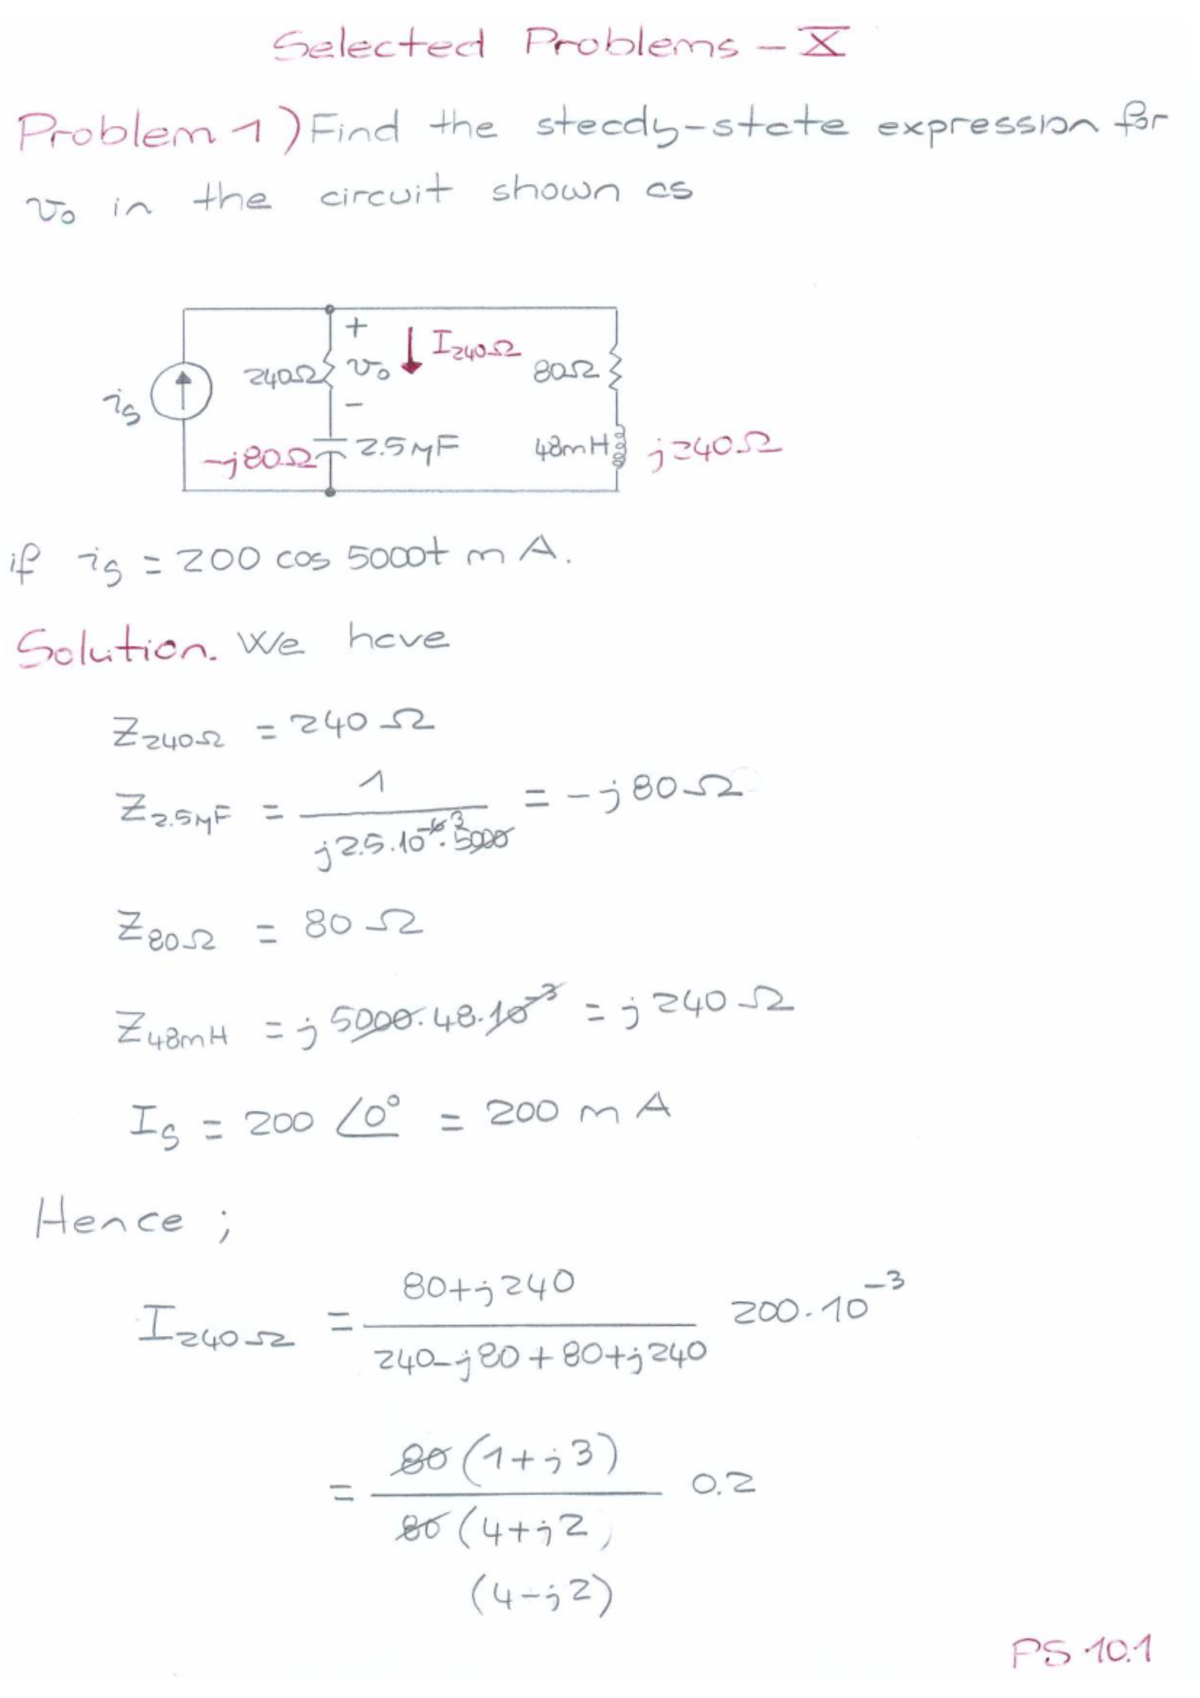 Selected Problems - X
Problem 1) Find the steady-state expression for
v₀ in the circuit shown as
+
I240Ω
240Ω
v₀
80Ω
is
-
-j80Ω
2.5μF
48mH
j240Ω
if is = 200 cos 5000t mA.
Solution. We have
Z240Ω = 240 Ω
Z2.5μF = 1 / (j2.5.10⁻⁶ ³ . 5000) = -j80Ω
Z80Ω = 80 Ω
Z48mH = j5000.48.10⁻³ = j240 Ω
Is = 200 ∠0° = 200 mA
Hence ;
I240Ω = (80+j240) / (240-j80+80+j240) 200.10⁻³
= 80(1+j3) / 80(4+j2) 0.2
(4-j2)
PS 10.1